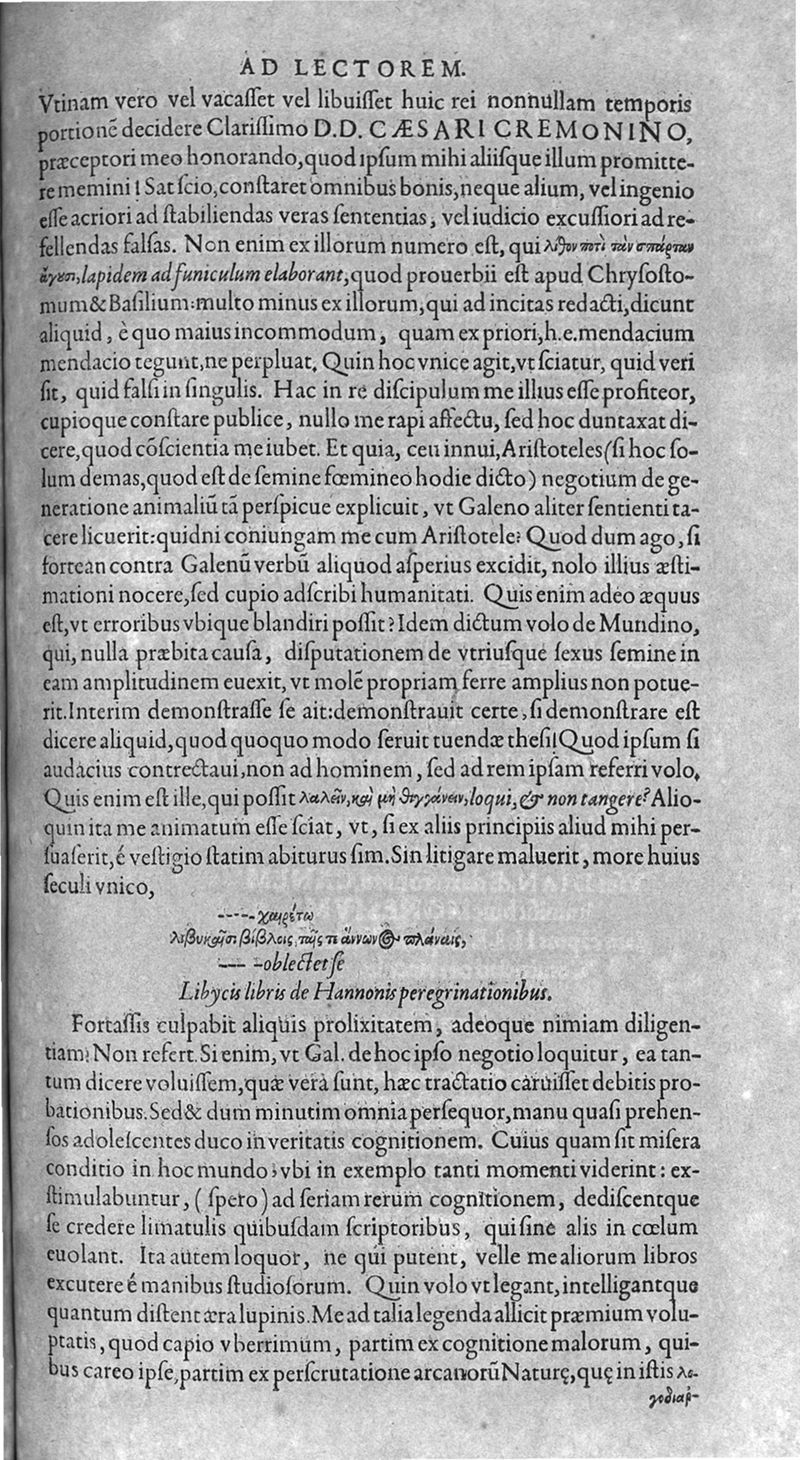 AD LECTOREM.
Vtinam vero vel vacaſſet vel libuiſſet huic rei nonnullam temporis
portionē decidere Clariſſimo D.D. CÆSARI CREMONINO,
præceptori meo honorando,quod ipſum mihi aliiſque illum promitte-
re memini ! Sat ſcio,conſtaret omnibus bonis,neque alium, vel ingenio
eſſe acriori ad ſtabiliendas veras ſententias, vel iudicio excuſſiori ad re-
fellendas falſas. Non enim ex illorum numero eſt, qui λίθον ποτὶ τὰν σπάρταν
ἄγουσι,lapidem ad funiculum elaborant,quod prouerbii eſt apud Chryſoſto-
mum & Baſilium:multo minus ex illorum,qui ad incitas redacti,dicunt
aliquid, è quo maius incommodum, quam ex priori,h.e.mendacium
mendacio tegunt,ne perpluat. Quin hoc vnice agit,vt ſciatur, quid veri
ſit, quid falſi in ſingulis. Hac in re diſcipulum me illius eſſe profiteor,
cupioque conſtare publice, nullo me rapi affectu, ſed hoc duntaxat di-
cere,quod cōſcientia me iubet. Et quia, ceu innui,Ariſtoteles (ſi hoc ſo-
lum demas,quod eſt de ſemine fœmineo hodie dicto) negotium de ge-
neratione animaliū tā perſpicue explicuit, vt Galeno aliter ſentienti ta-
cere licuerit:quidni coniungam me cum Ariſtotele? Quod dum ago, ſi
fortean contra Galenū verbū aliquod aſperius excidit, nolo illius æſti-
mationi nocere,ſed cupio adſcribi humanitati. Quis enim adeo æquus
eſt,vt erroribus vbique blandiri poſſit? Idem dictum volo de Mundino,
qui, nulla præbita cauſa, diſputationem de vtriuſque ſexus ſemine in
eam amplitudinem euexit, vt molē propriam ferre amplius non potue-
rit.Interim demonſtraſſe ſe ait:demonſtrauit certe,ſi demonſtrare eſt
dicere aliquid,quod quoquo modo ſeruit tuendæ theſi!Quod ipſum ſi
audacius contrectaui,non ad hominem, ſed ad rem ipſam referri volo.
Quis enim eſt ille,qui poſſit λαλεῖν, καὶ μὴ θιγγάνειν,loqui, & non tangere? Alio-
quin ita me animatum eſſe ſciat, vt, ſi ex aliis principiis aliud mihi per-
ſuaſerit,é veſtigio ſtatim abiturus ſim.Sin litigare maluerit, more huius
ſeculi vnico,
----- χαιρέτω
λιβυκαῖσι βίβλοις, ταῖς τε ἄννωνος πλάναις,
--- -oblectet ſe
Libycis libris de Hannonis peregrinationibus.
Fortaſſis culpabit aliquis prolixitatem, adeoque nimiam diligen-
tiam! Non refert.Si enim, vt Gal. de hoc ipſo negotio loquitur, ea tan-
tum dicere voluiſſem,quæ vera ſunt, hæc tractatio caruiſſet debitis pro-
bationibus.Sed & dum minutim omnia perſequor,manu quaſi prehen-
ſos adoleſcentes duco in veritatis cognitionem. Cuius quam ſit miſera
conditio in hoc mundo, vbi in exemplo tanti momenti viderint: ex-
ſtimulabuntur, ( ſpero ) ad ſeriam rerum cognitionem, dediſcentque
ſe credere limatulis quibuſdam ſcriptoribus, qui ſine alis in cœlum
euolant. Ita autem loquor, ne qui putent, velle me aliorum libros
excutere é manibus ſtudioſorum. Quin volo vt legant,intelligantque
quantum diſtent æra lupinis.Me ad talia legenda allicit præmium volu-
ptatis, quod capio vberrimum, partim ex cognitione malorum, qui-
bus careo ipſe,partim ex perſcrutatione arcanorū Naturę,quę in iſtis λε-